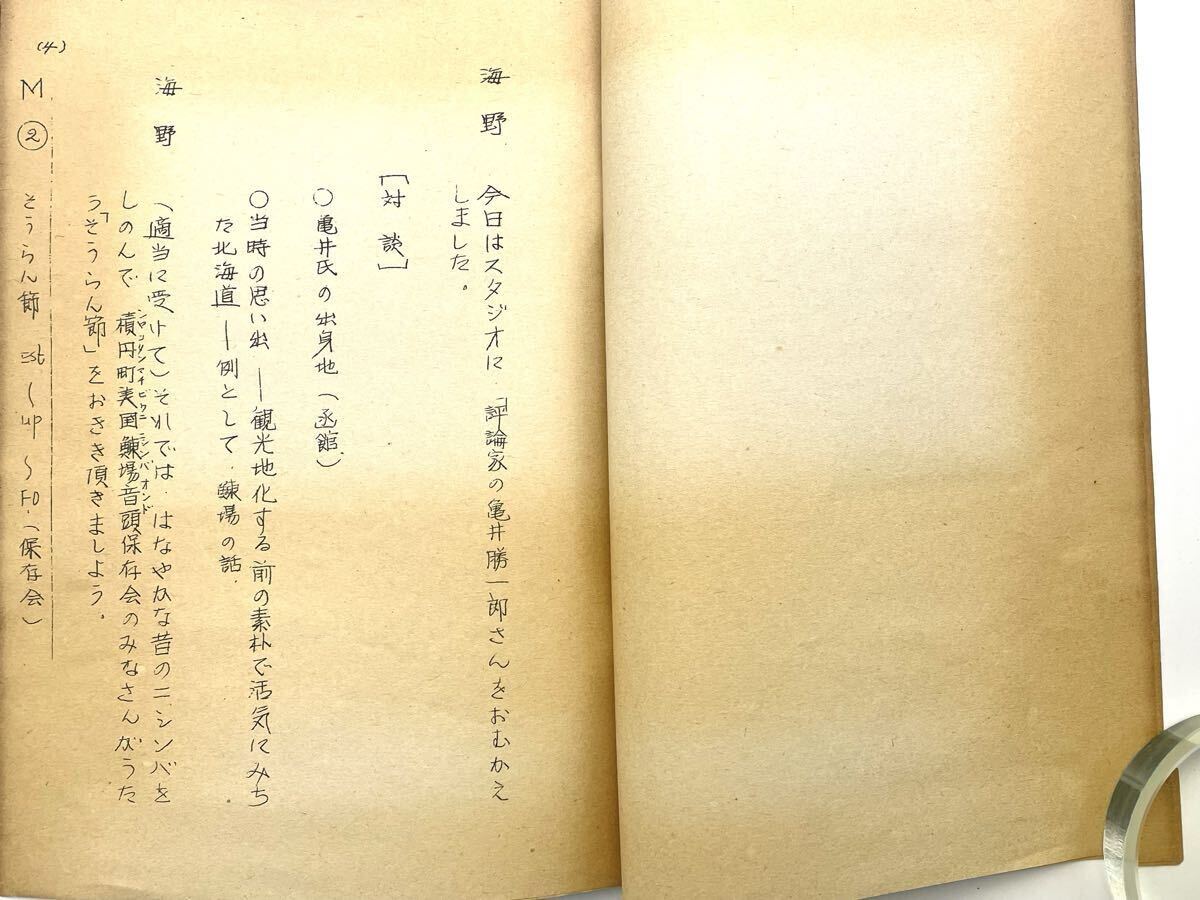 (4)
海野 今日はスタジオに、「評論家の亀井勝一郎さんをおむかえ
しました。
[対談]
○亀井氏の出身地(函館)
○当時の思い出――観光地化する前の素朴で活気にみち
た北海道――例として、鰊場の話。
海野 (適当に受けて)それでは、はなやかな昔のニシンバを
しのんで、積円町美国鰊場音頭保存会のみなさんがうた
う「そうらん節」をおきき頂きましよう。
M② そうらん節 est〜up〜FO.(保存会)